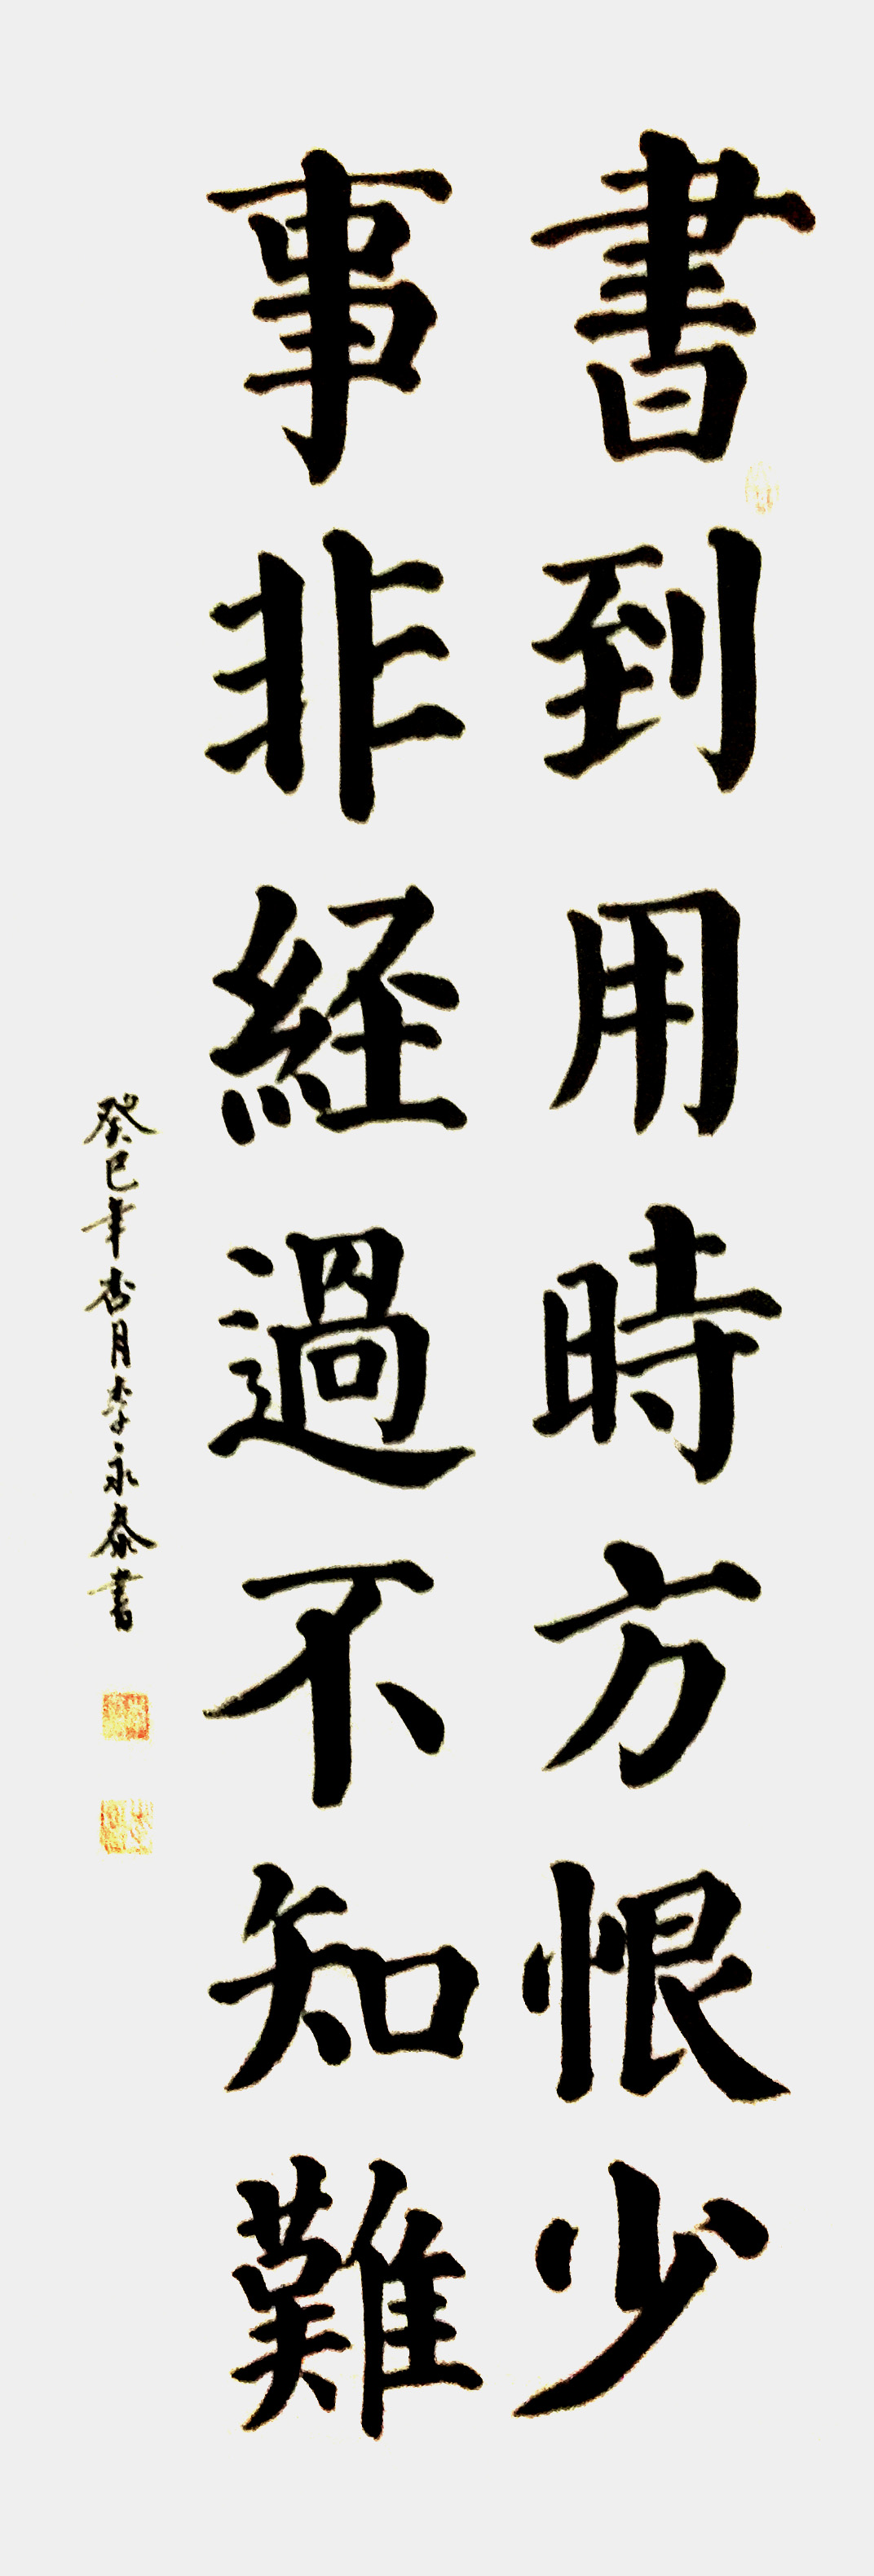 書到用時方恨少
事非経過不知難
癸巳年杏月李永泰書